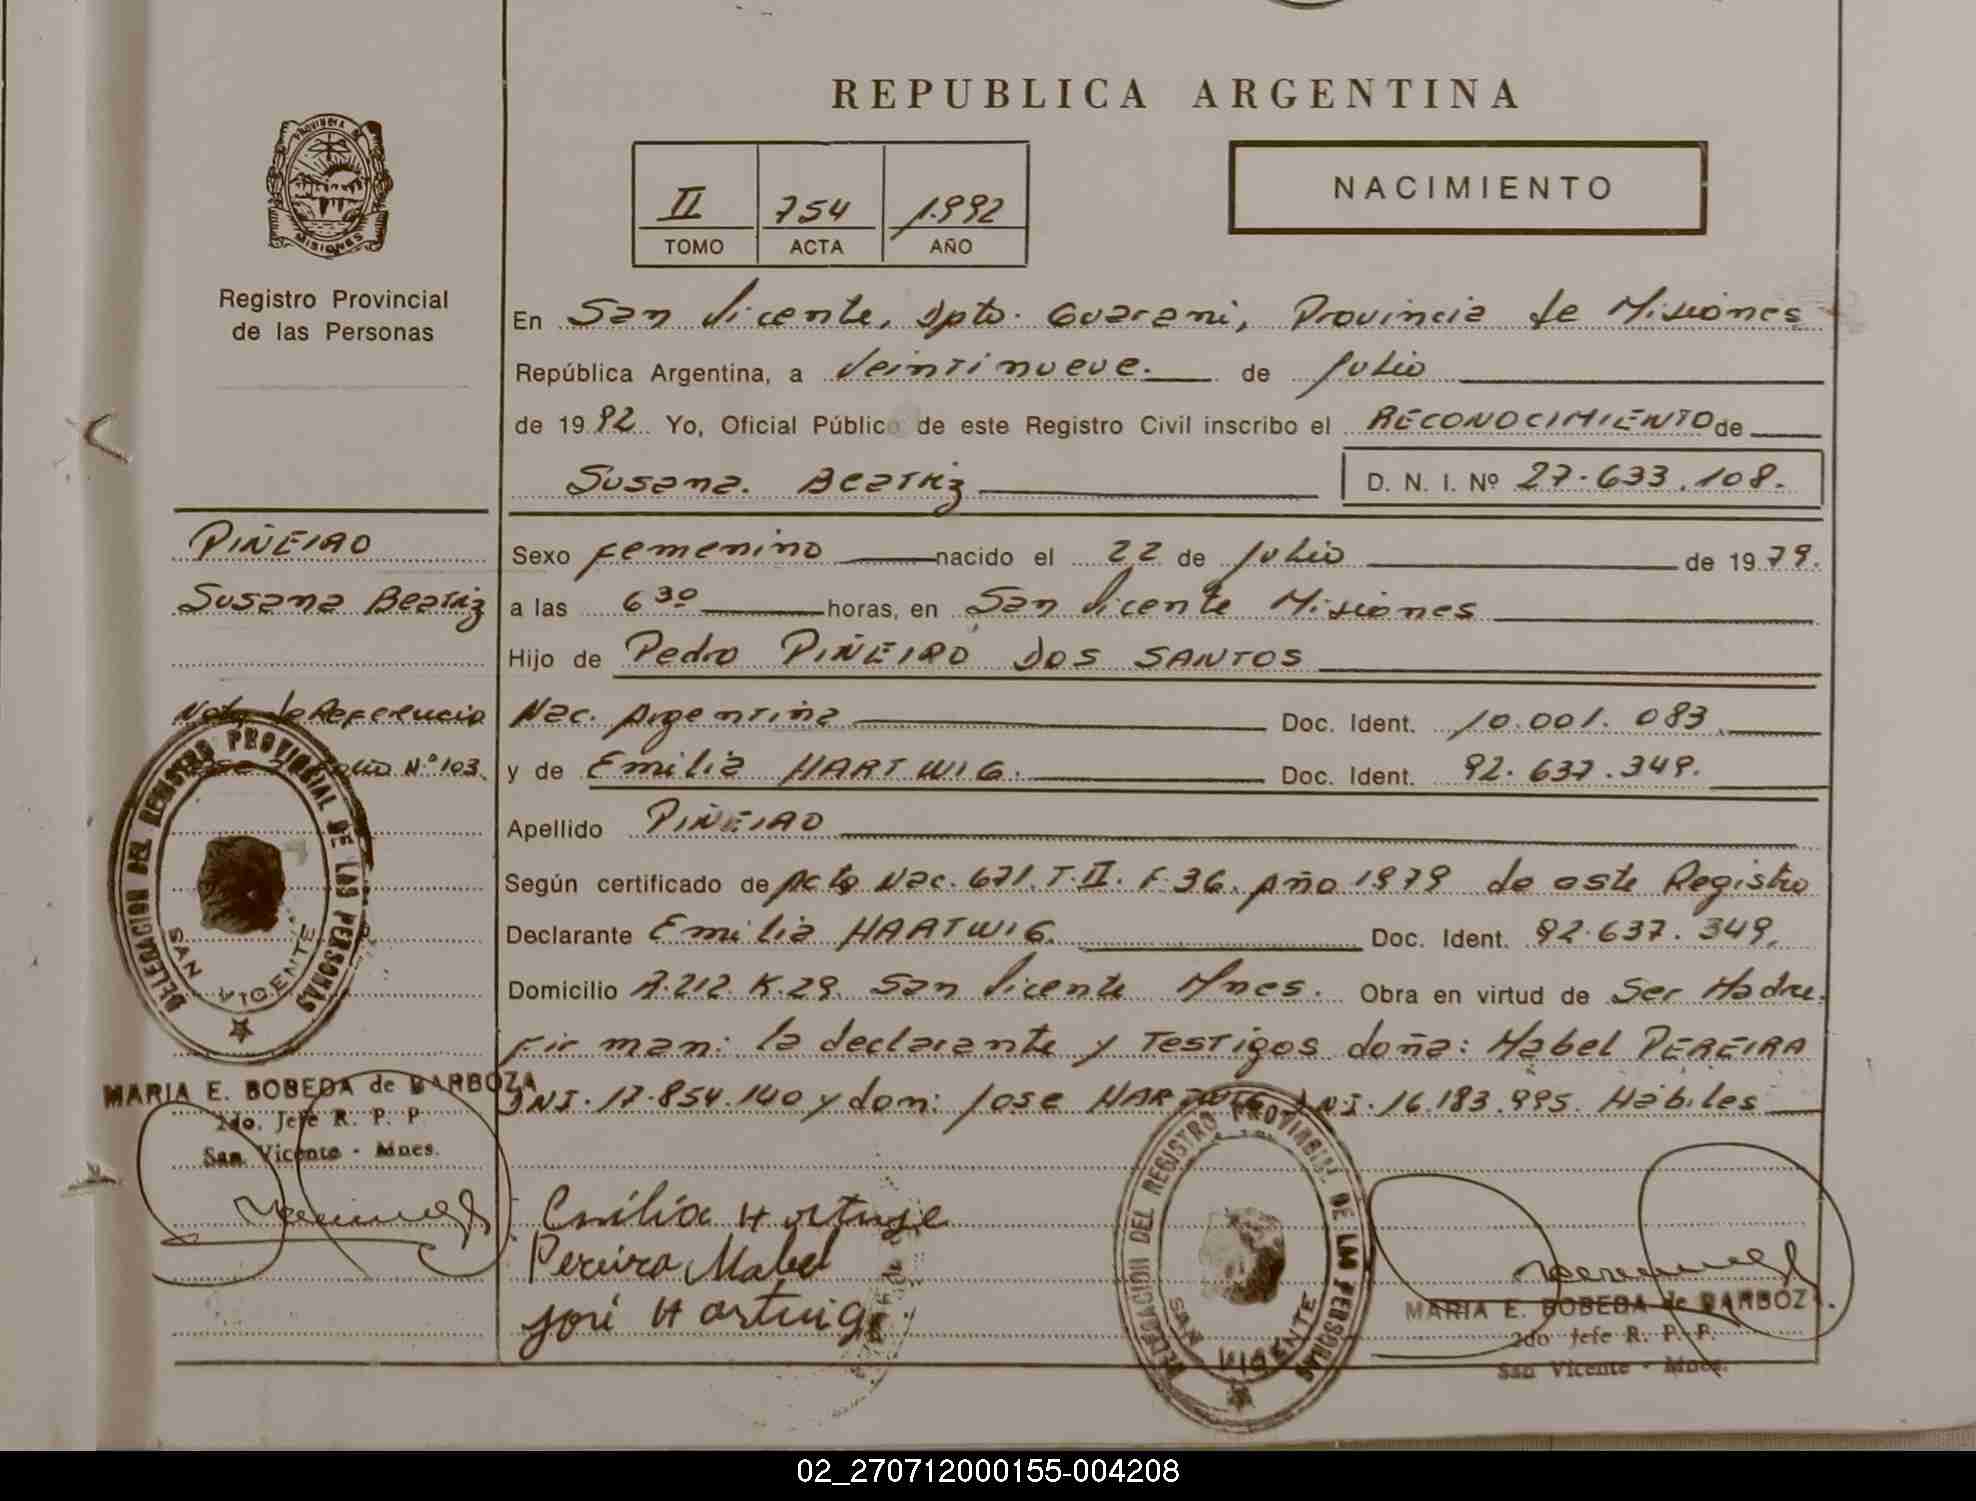 REPUBLICA ARGENTINA
PROVINCIA DE
MISIONES
Registro Provincial
de las Personas
II 754 1.992
TOMO ACTA AÑO
NACIMIENTO
En San Vicente, Dpto. Guarani, Provincia de Misiones
República Argentina, a Veintinueve. de Julio
de 1992 Yo, Oficial Público de este Registro Civil inscribo el RECONOCIMIENTO de
Susana. Beatriz D. N. I. Nº 27.633.108.
PIÑEIRO
Susana Beatriz
Nota de Referencia
folio N.º 103.
Sexo femenino nacido el 22 de Julio de 1979.
a las 6 30 horas, en San Vicente Misiones
Hijo de Pedro PIÑEIRO DOS SANTOS
Nac. Argentina Doc. Ident. 10.001.083
y de Emilia HARTWIG. Doc. Ident. 92.637.349.
Apellido PIÑEIRO
Según certificado de Acta Nac. 671. T. II. F. 36. Año 1979 de este Registro
Declarante Emilia HARTWIG. Doc. Ident. 92.637.349.
Domicilio K.29 San Vicente Mnes. Obra en virtud de Ser Madre.
Firman: la declarante y Testigos doña: Mabel PEREIRA
DNI. 17.854.140 y don: Jose HARTWIG DNI. 16.183.995. Hábiles
DELEGACION DEL REGISTRO PROVINCIAL DE LAS PERSONAS
SAN VICENTE
MARIA E. BOBEDA de BARBOZA
2do. Jefe R. P. P.
San Vicente - Mnes.
Emilia Hartwig
Pereira Mabel
José Hartwig
DELEGACION DEL REGISTRO PROVINCIAL DE LAS PERSONAS
SAN VICENTE
MARIA E. BOBEDA de BARBOZA
2do Jefe R. P. P.
San Vicente - Mnes.
02_270712000155-004208